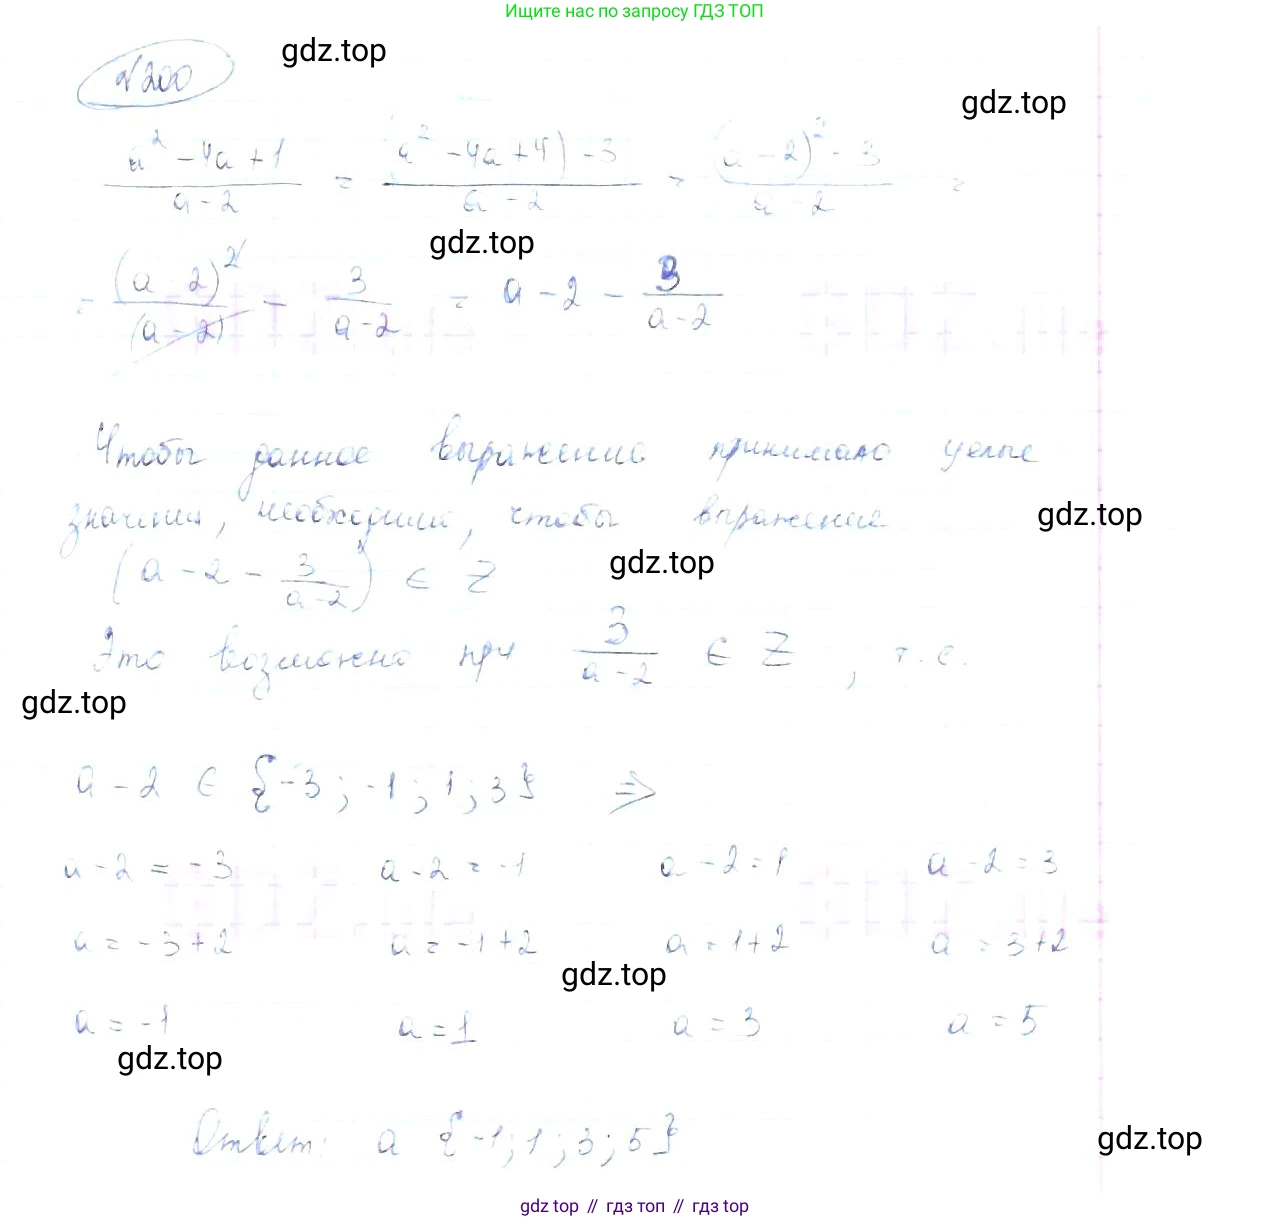 Ищите нас по запросу ГДЗ ТОП
gdz.top
№200
gdz.top
(a² - 4a + 1)/(a - 2) = ((a² - 4a + 4) - 3)/(a - 2) = ((a - 2)² - 3)/(a - 2) =
gdz.top
= (a - 2)²/(a - 2) - 3/(a - 2) = a - 2 - 3/(a - 2)
Чтобы данное выражение принимало целые
значения, необходимо, чтобы выражение
gdz.top
gdz.top
(a - 2 - 3/(a - 2)) ∈ Z
Это возможно при 3/(a - 2) ∈ Z, т.е.
gdz.top
a - 2 ∈ {-3; -1; 1; 3} ⇒
a - 2 = -3 a - 2 = -1 a - 2 = 1 a - 2 = 3
a = -3 + 2 a = -1 + 2 a = 1 + 2 a = 3 + 2
gdz.top
a = -1 a = 1 a = 3 a = 5
gdz.top
Ответ: a {-1; 1; 3; 5}
gdz.top
gdz top // гдз топ // gdz top